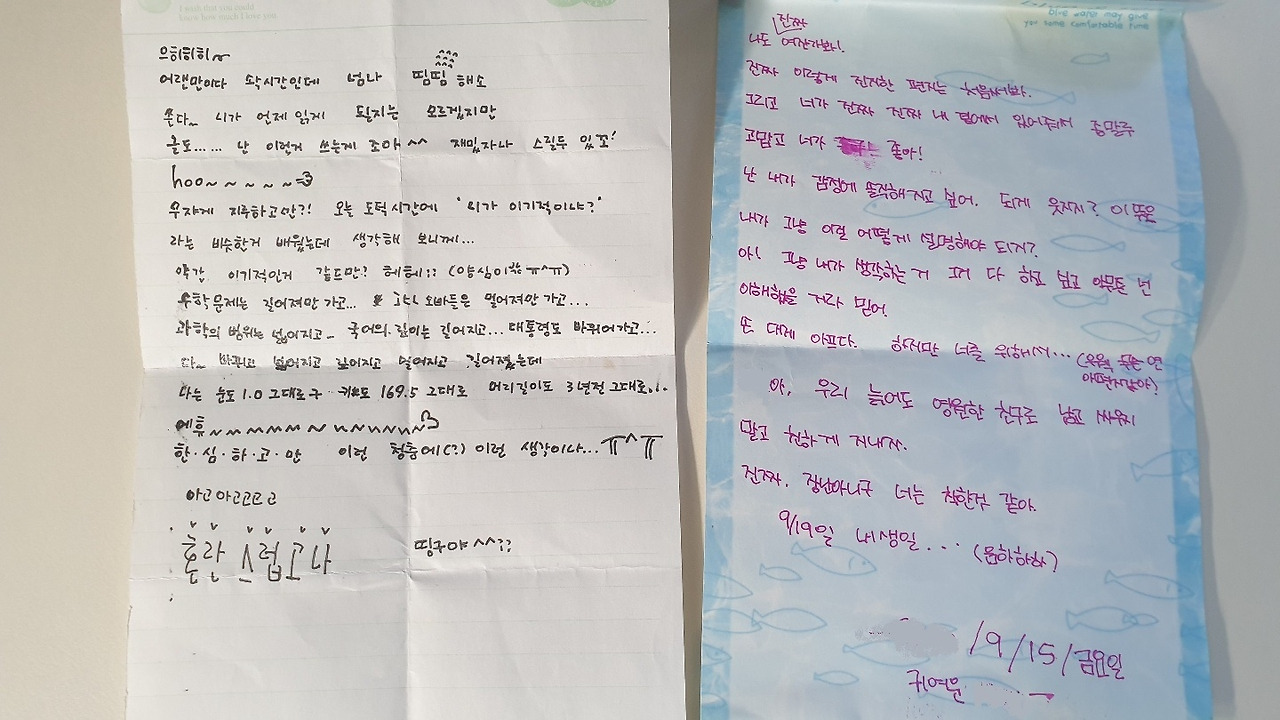 I wish that you could
know how much I love you.
으히히히~
어랜만이다 속시간인데 넘나 띰띰 해소
쓴다~ 니가 언제 읽게 될지는 모르겠지만
글도...... 난 이런거 쓰는게 조아^^ 재밌자나 스릴두 있꼬!
hoo~~~~~=3
무쟈게 지루하고만?! 오늘 도덕시간에 '니가 이기적이냐?'
라는 비슷한거 배웠는데 생각해 보니께...
약간 이기적인거 같드만! 헤헤;; (양심이 ㅠ^ㅠ)
수학문제는 길어져만 가고... 오빠들은 멀어져만 가고...
과학의 범위는 넓어지고.. 국어의 깊이는 깊어지고... 대통령도 바뀌어가고...
다~ 바뀌고 넓어지고 깊어지고 멀어지고 길어졌는데
나는 눈도 1.0 그대로구 키도 169.5 그대로 머리길이도 3년전 그대로..
에휴~~~~~~~~~~3
한·심·하·고·만 이런 청춘에(?) 이런 생각이나... ㅠ^ㅠ
아고 아고고고고
혼란스럽고나 띵구야^^??
blue water may give
you some comfortable time
나도 진짜 여잔가봐!
진짜 이렇게 진지한 편지는 처음써봐.
그리고 너가 진짜 진짜 내 옆에서 있어줘서 정말루
고맙고 너가 좋아!
난 내가 감정에 솔직해지고 싶어. 되게 웃기지? 이 뜻은
내가 그냥 이걸 어떻게 설명해야 되지?
아! 그냥 내가 생각하는 거 그거 다 하고 싶고 아무튼 넌
이해했을 거라 믿어.
손 대게 아프다. 하지만 너를 위해서... (우욱, 무슨 연
애편지같아?)
아, 우리 늙어도 영원한 친구로 남고 싸우지
말고 친하게 지내자.
진짜. 장난아니구 너는 착한것 같아.
9/19일 내생일... (음하하하?)
/9/15/금요일
귀여운